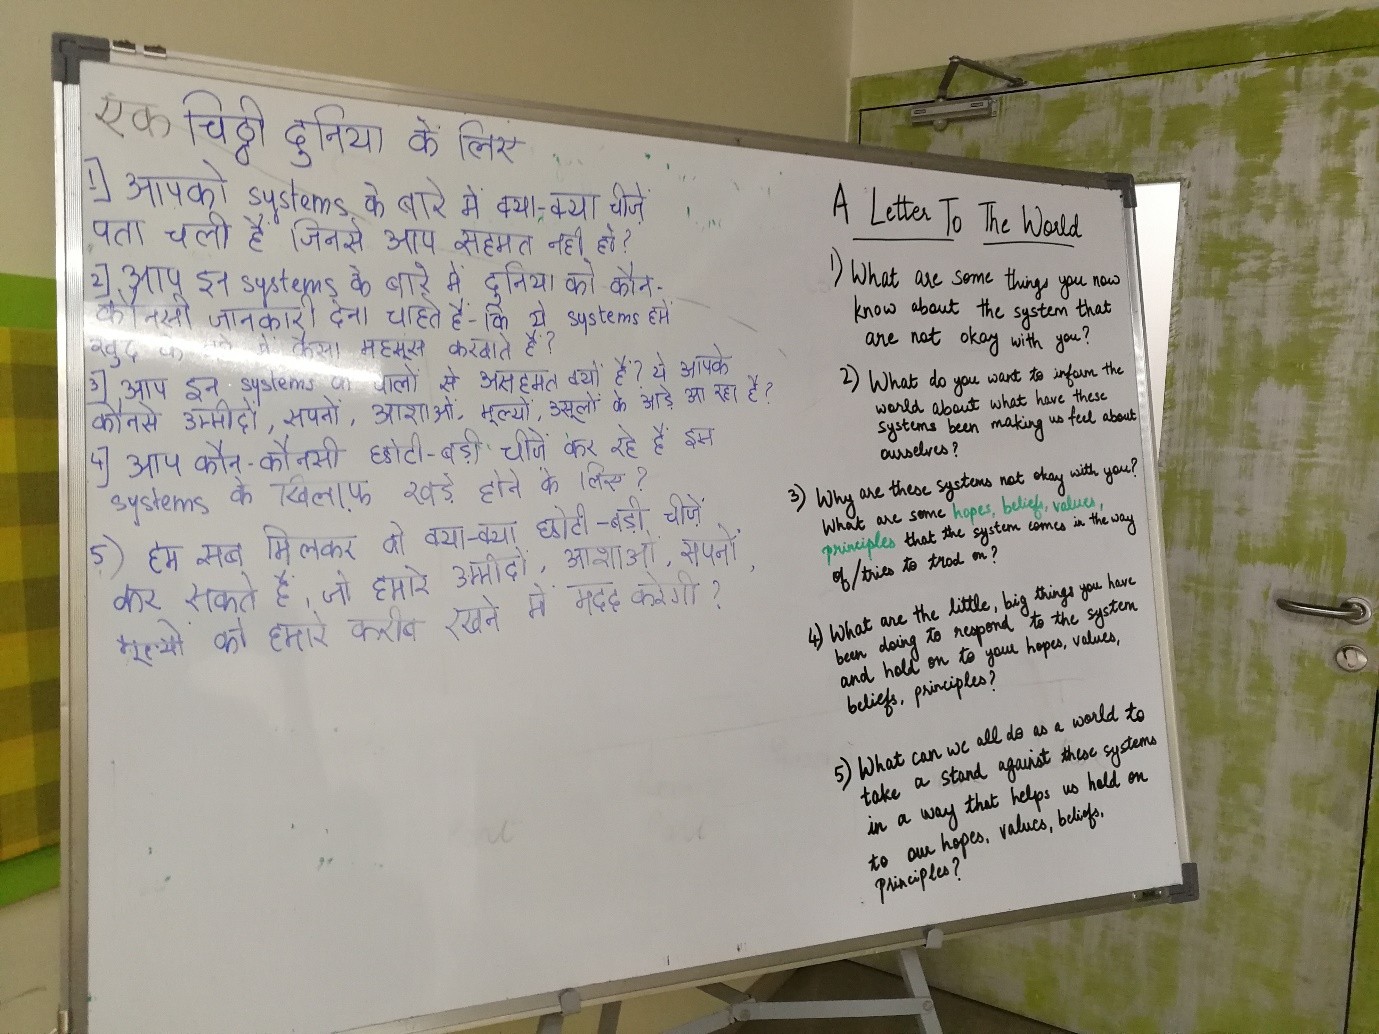 एक चिठ्ठी दुनिया के लिए
1] आपको systems के बारे में क्या-क्या चीज़ें
पता चली हैं जिनसे आप सहमत नहीं हो?
2] आप इन systems के बारे में दुनिया को कौन-
कौनसी जानकारी देना चाहते हैं - कि ये systems हमें
खुद के में कैसा महसूस करवाते हैं?
3] आप इन systems की चालों से असहमत क्यों हैं? ये आपके
कौनसे उम्मीदों, सपनों, आशाओं, मूल्यों, उसूलों के आड़े आ रहा है?
4] आप कौन-कौनसी छोटी-बड़ी चीज़ें कर रहे हैं इस
systems के खिलाफ़ खड़े होने के लिए?
5) हम सब मिलकर वो क्या-क्या छोटी-बड़ी चीज़ें
कर सकते हैं, जो हमारे उम्मीदों, आशाओं, सपनों,
मूल्यों को हमारे करीब रखने में मदद करेगी?
A Letter To The World
1) What are some things you now
know about the system that
are not okay with you?
2) What do you want to inform the
world about what have these
systems been making us feel about
ourselves?
3) Why are these systems not okay with you?
What are some hopes, beliefs, values,
principles that the system comes in the way
of/tries to trod on?
4) What are the little, big things you have
been doing to respond to the system
and hold on to your hopes, values,
beliefs, principles?
5) What can we all do as a world to
take a stand against these systems
in a way that helps us hold on
to our hopes, values, beliefs,
principles?